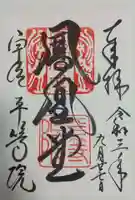 奉拝
令和三年
九月廿一日
鳳凰堂
宇治
平等院